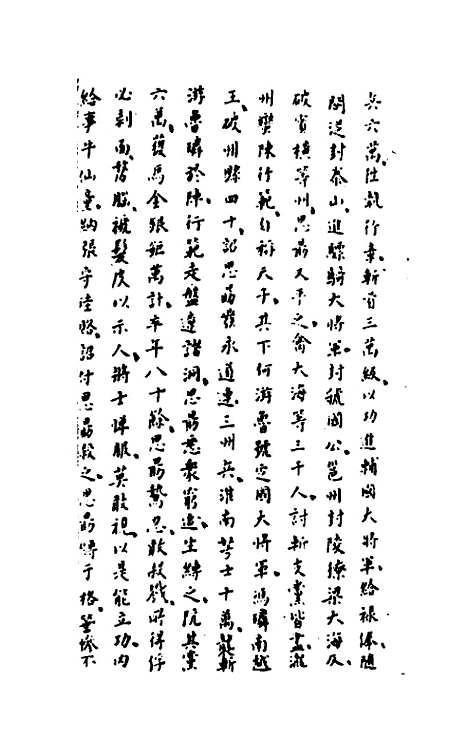 兵六萬往執行章斬首三萬級以功進輔國大將軍給祿俸隨
閤從封泰山進驃騎大將軍封虢國公邕州封陵獠梁大海反
破賓橫等州思勗又平之禽大海等三千人討斬支黨皆盡瀧
州蠻陳行範自稱天子其下何游魯號定國大將軍馮璘南越
王破州縣四十詔思勗發永道連三州兵淮南弩士十萬襲斬
游魯璘於陳行範走盤遼諸洞思勗悉衆窮追生縛之阬其黨
六萬獲馬金銀鉅萬計卒年八十餘思勗鷙忍敢殺戮所得俘
必剥面𩮰腦褫髮皮以示人將士憚服莫敢視以是能立功内
給事牛仙童納張守珪賂詔付思勗殺之思勗縛于格箠慘不